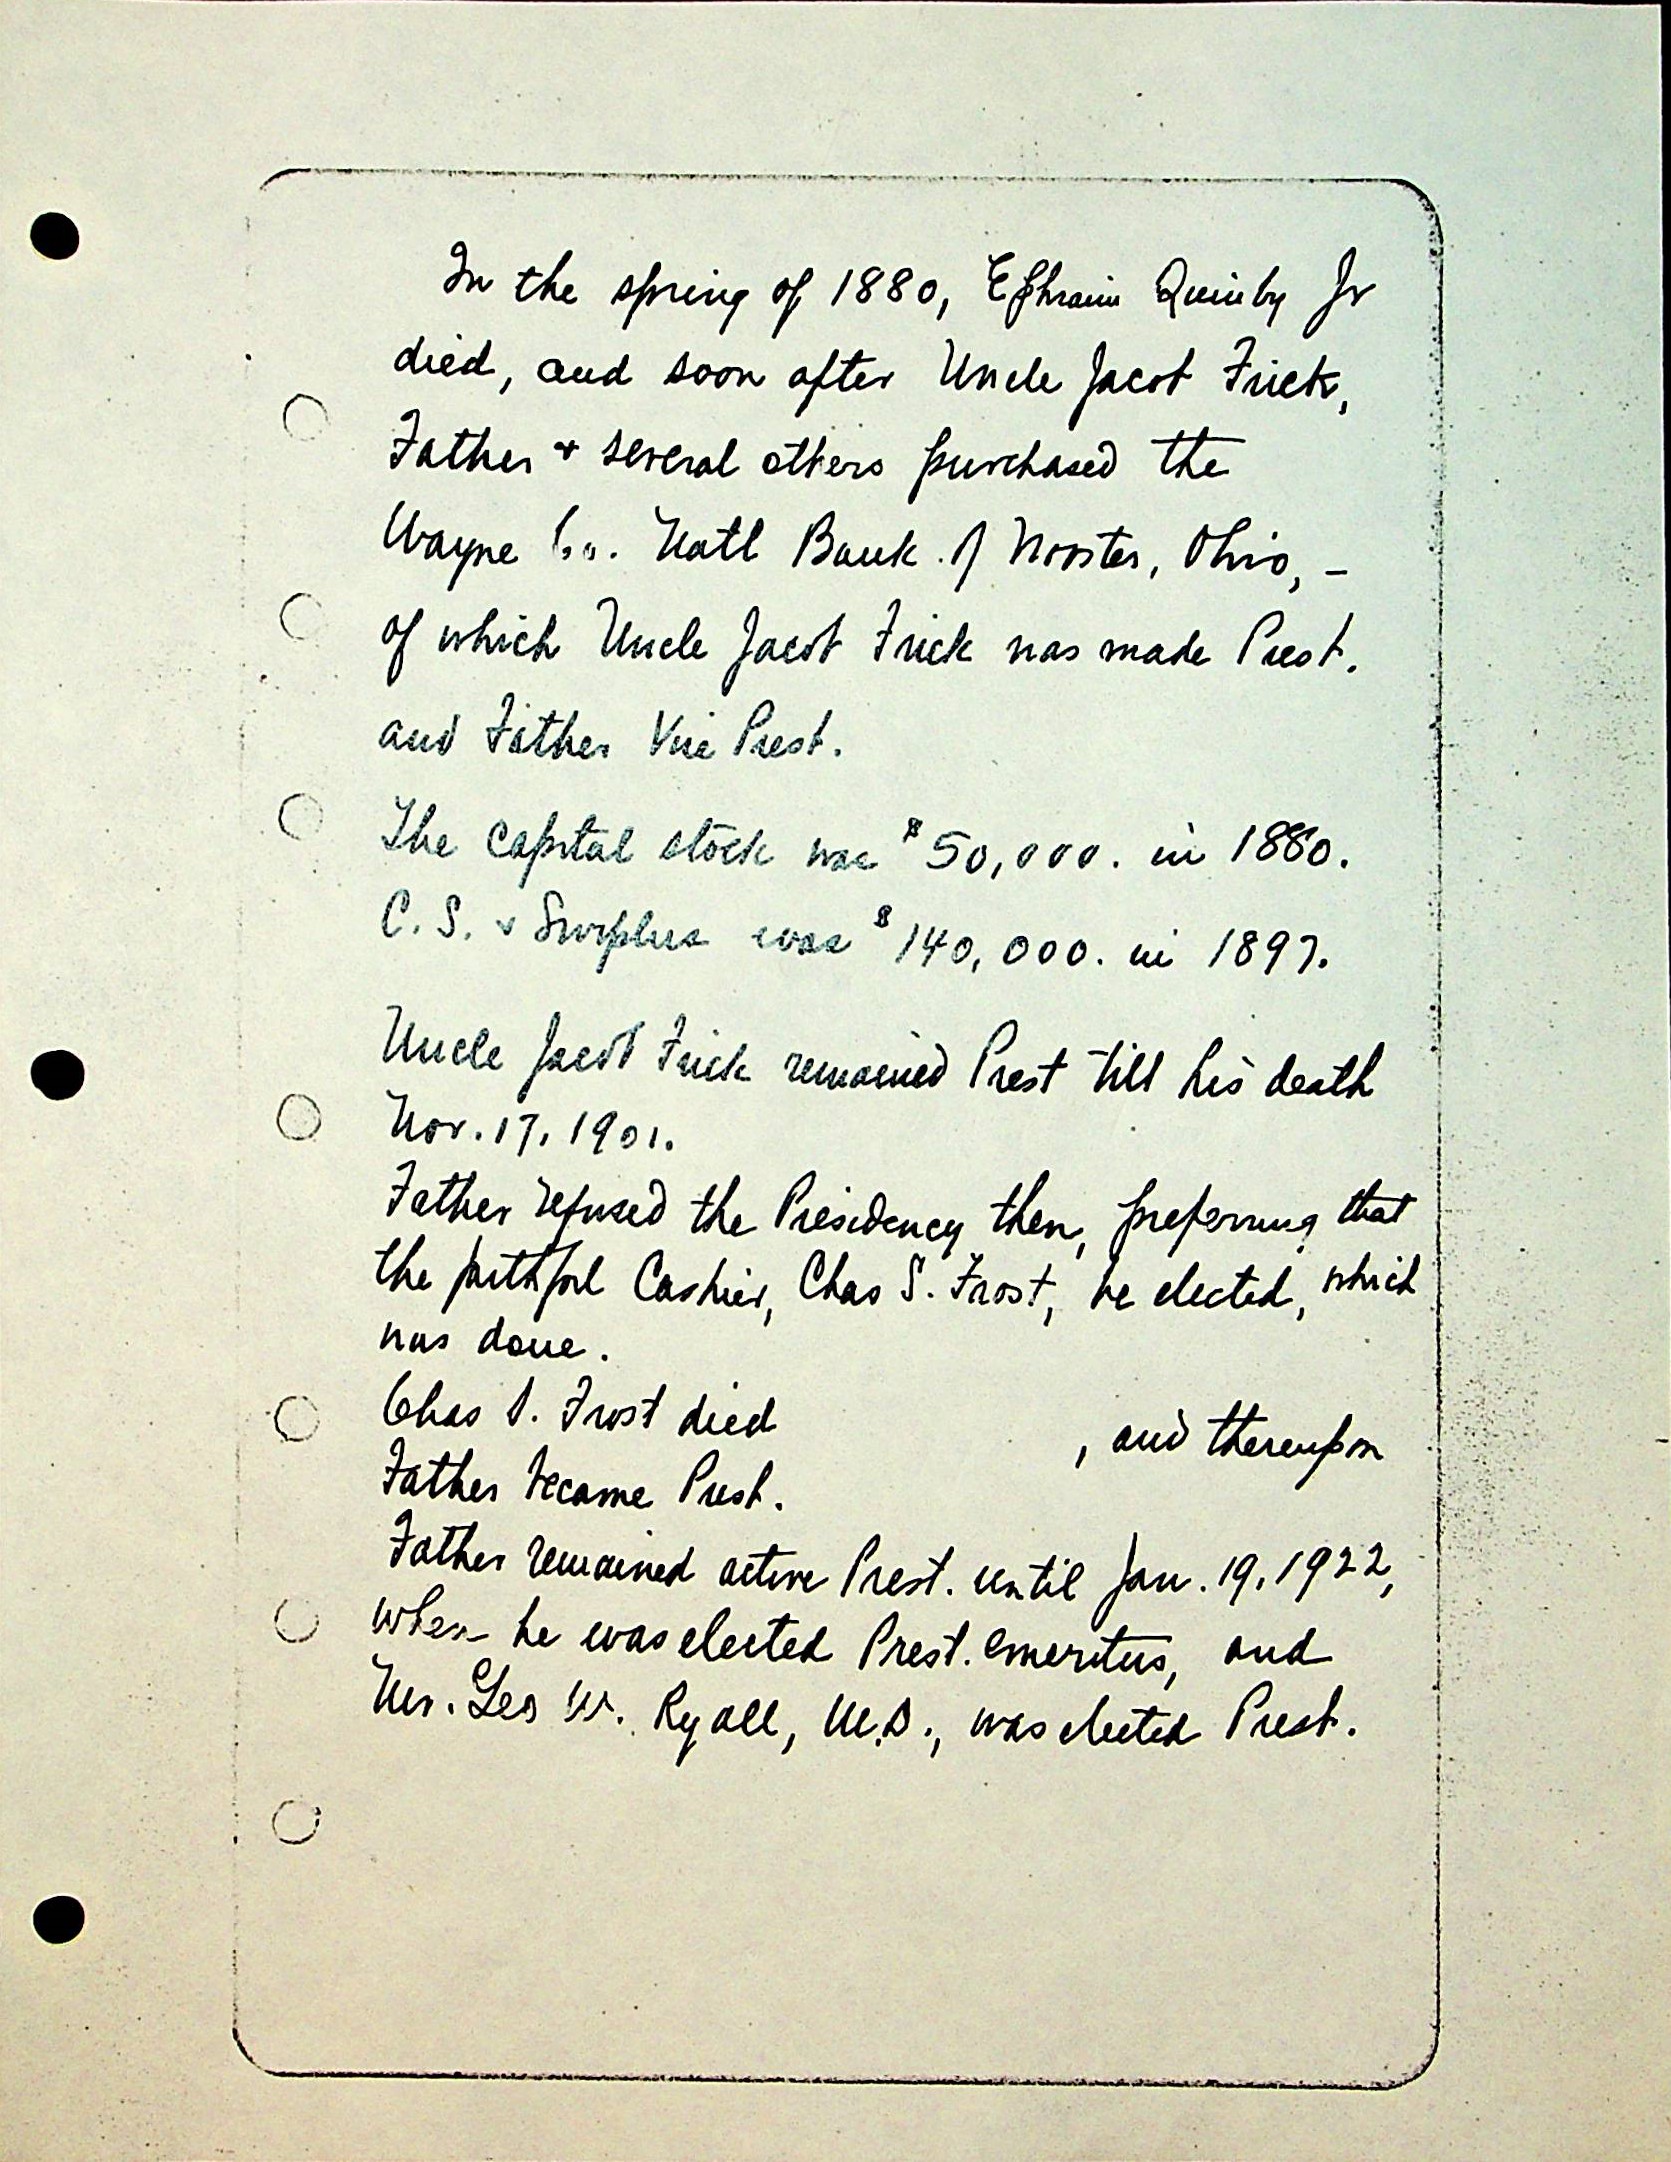 In the spring of 1880, Ephraim Quinby Jr
died, and soon after Uncle Jacob Frick,
Father & several others purchased the
Wayne Co. Natl Bank of Wooster, Ohio, -
of which Uncle Jacob Frick was made Prest.
and Father Vice Prest.
The capital stock was $50,000. in 1880.
C. S. & Surplus was $140,000. in 1897.
Uncle Jacob Frick remained Prest till his death
Nov. 17, 1901.
Father refused the Presidency then, preferring that
the faithful Cashier, Chas S. Frost, be elected, which
was done.
Chas S. Frost died , and thereupon
Father became Prest.
Father remained active Prest. until Jan. 19, 1922,
when he was elected Prest. emeritus, and
Mr. Geo W. Ryall, M.D., was elected Prest.